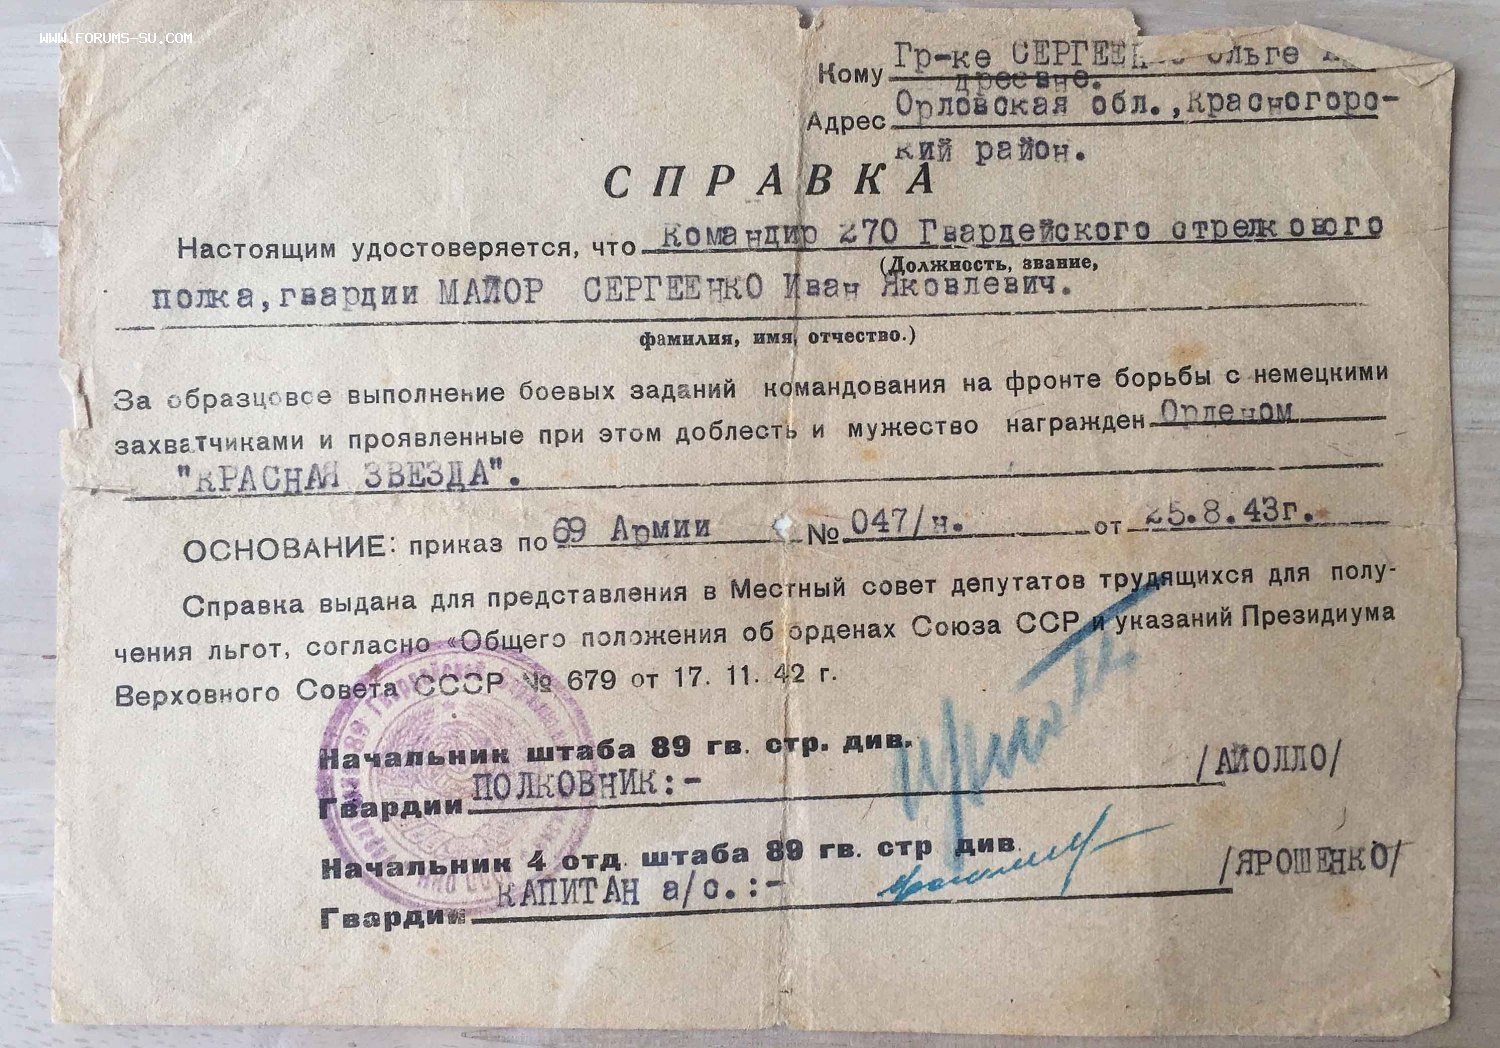 WWW.FORUMS-SU.COM
Кому Гр-ке СЕРГЕЕНКО Ольге
дреевне.
Адрес Орловская обл., Красногорс-
кий район.
СПРАВКА
Настоящим удостоверяется, что Командир 270 Гвардейского стрелкового
(Должность, звание,
полка, гвардии МАЙОР СЕРГЕЕНКО Иван Яковлевич.
фамилия, имя, отчество.)
За образцовое выполнение боевых заданий командования на фронте борьбы с немецкими
захватчиками и проявленные при этом доблесть и мужество награжден Орденом
"КРАСНАЯ ЗВЕЗДА".
ОСНОВАНИЕ: приказ по 69 Армии № 047/н. от 25.8.43г.
Справка выдана для представления в Местный совет депутатов трудящихся для полу-
чения льгот, согласно «Общего положения об орденах Союза ССР и указаний Президиума
Верховного Совета СССР № 679 от 17. 11. 42 г.
Начальник штаба 89 гв. стр. див.
Гвардии ПОЛКОВНИК:- /АЙОЛЛО/
Начальник 4 отд. штаба 89 гв. стр див
Гвардии КАПИТАН а/с.:- /ЯРОШЕНКО/